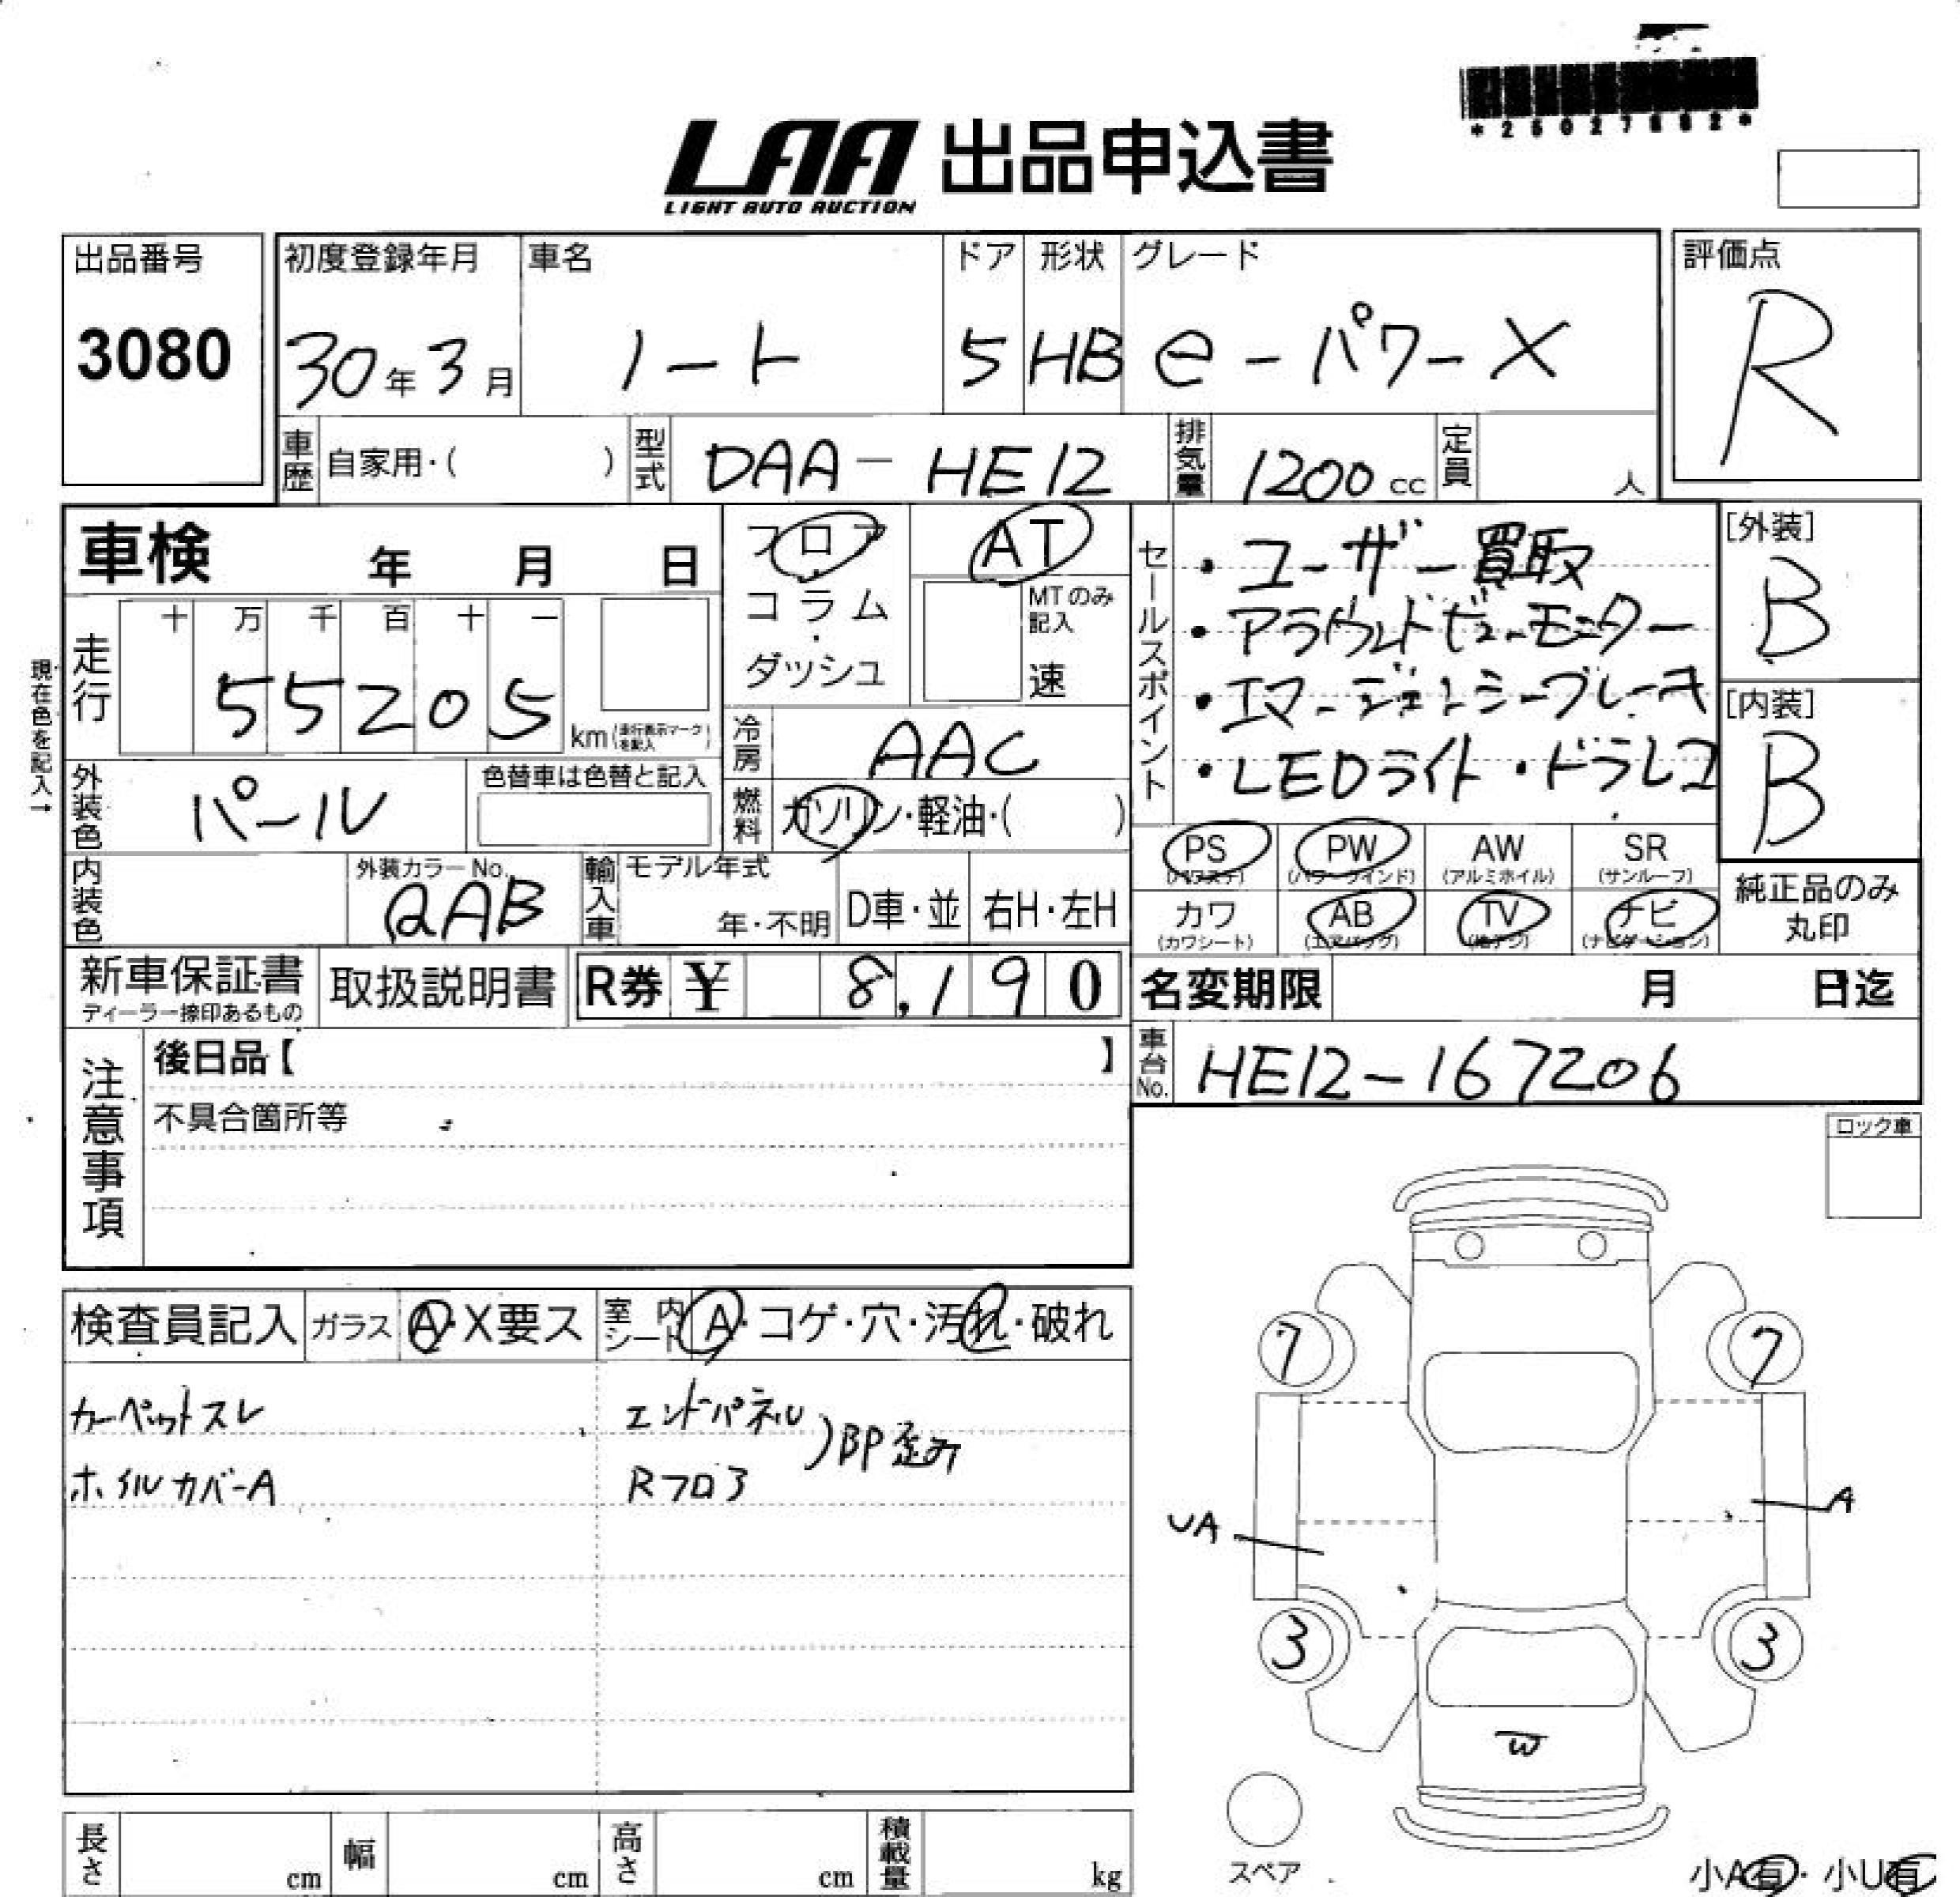 LAA 出品申込書
LIGHT AUTO AUCTION
出品番号
3080
初度登録年月
30年3月
車名
ノート
ドア
5
形状
HB
グレード
e-パワーX
評価点
R
車歴 自家用・( )
型式 DAA-HE12
排気量 1200cc
定員 人
車検 年 月 日
フロア
・
コラム
・
ダッシュ
AT
MTのみ
記入
速
セールスポイント
・ユーザー買取
・アラウンドビューモニター
・エマージェンシーブレーキ
・LEDライト・ドラレコ
[外装]
B
[内装]
B
現在色を記入→
走行
十 万 千 百 十 一
55205
km(走行表示マークを記入)
冷房 AAC
燃料 ガソリン・軽油・( )
外装色 パール
色替車は色替と記入
PS (パワステ)
PW (パワーウインド)
AW (アルミホイル)
SR (サンルーフ)
カワ (カワシート)
AB (エアバッグ)
TV (地デジ)
ナビ (ナビゲーション)
純正品のみ
丸印
内装色
外装カラーNo.
QAB
輸入車
モデル年式
年・不明
D車・並
右H・左H
新車保証書
ディーラー捺印あるもの
取扱説明書
R券 ¥ 8,190
名変期限 月 日迄
車台No. HE12-167206
注意事項
後日品【 】
不具合箇所等
ロック車
検査員記入
ガラス A・X要ス
室内シート A・コゲ・穴・汚れ・破れ
カーペットスレ
ホイルカバーA
エンドパネル
Rフロア
)BP歪み
7
7
UA
A
3
3
W
スペア
小A有・小U有
長さ cm
幅 cm
高さ cm
積載量 kg